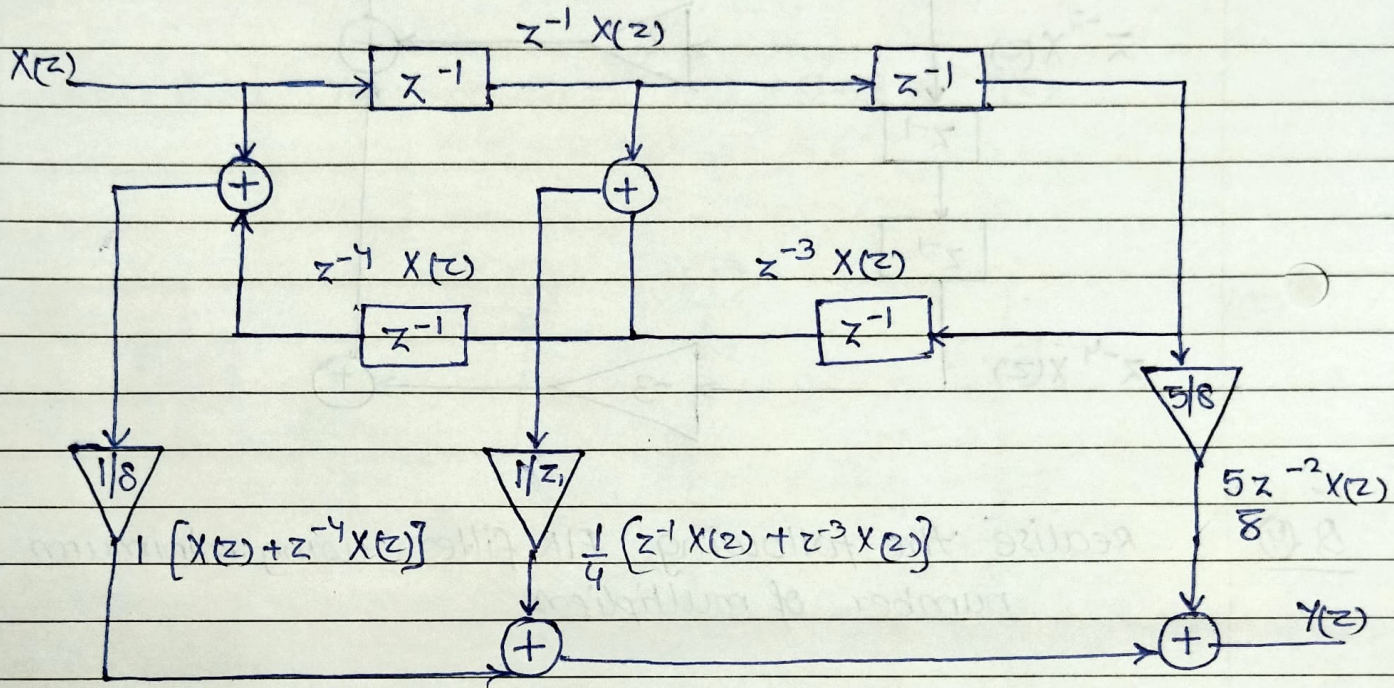 z⁻¹ X(z)
X(z)
z⁻¹
z⁻¹
+
+
z⁻⁴ X(z)
z⁻³ X(z)
z⁻¹
z⁻¹
5/8
1/8
5z⁻² X(z)
8
1 [X(z) + z⁻⁴ X(z)]
1/4 [z⁻¹ X(z) + z⁻³ X(z)]
+
+
Y(z)